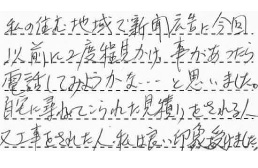 私の住む地域で新聞広告に今回
以前に2度程見かけ事があったら
電話してみようかな…と思いました。
自宅に尋ねてこられた見積りをされる人
又工事をされた人私は良い印象受けました